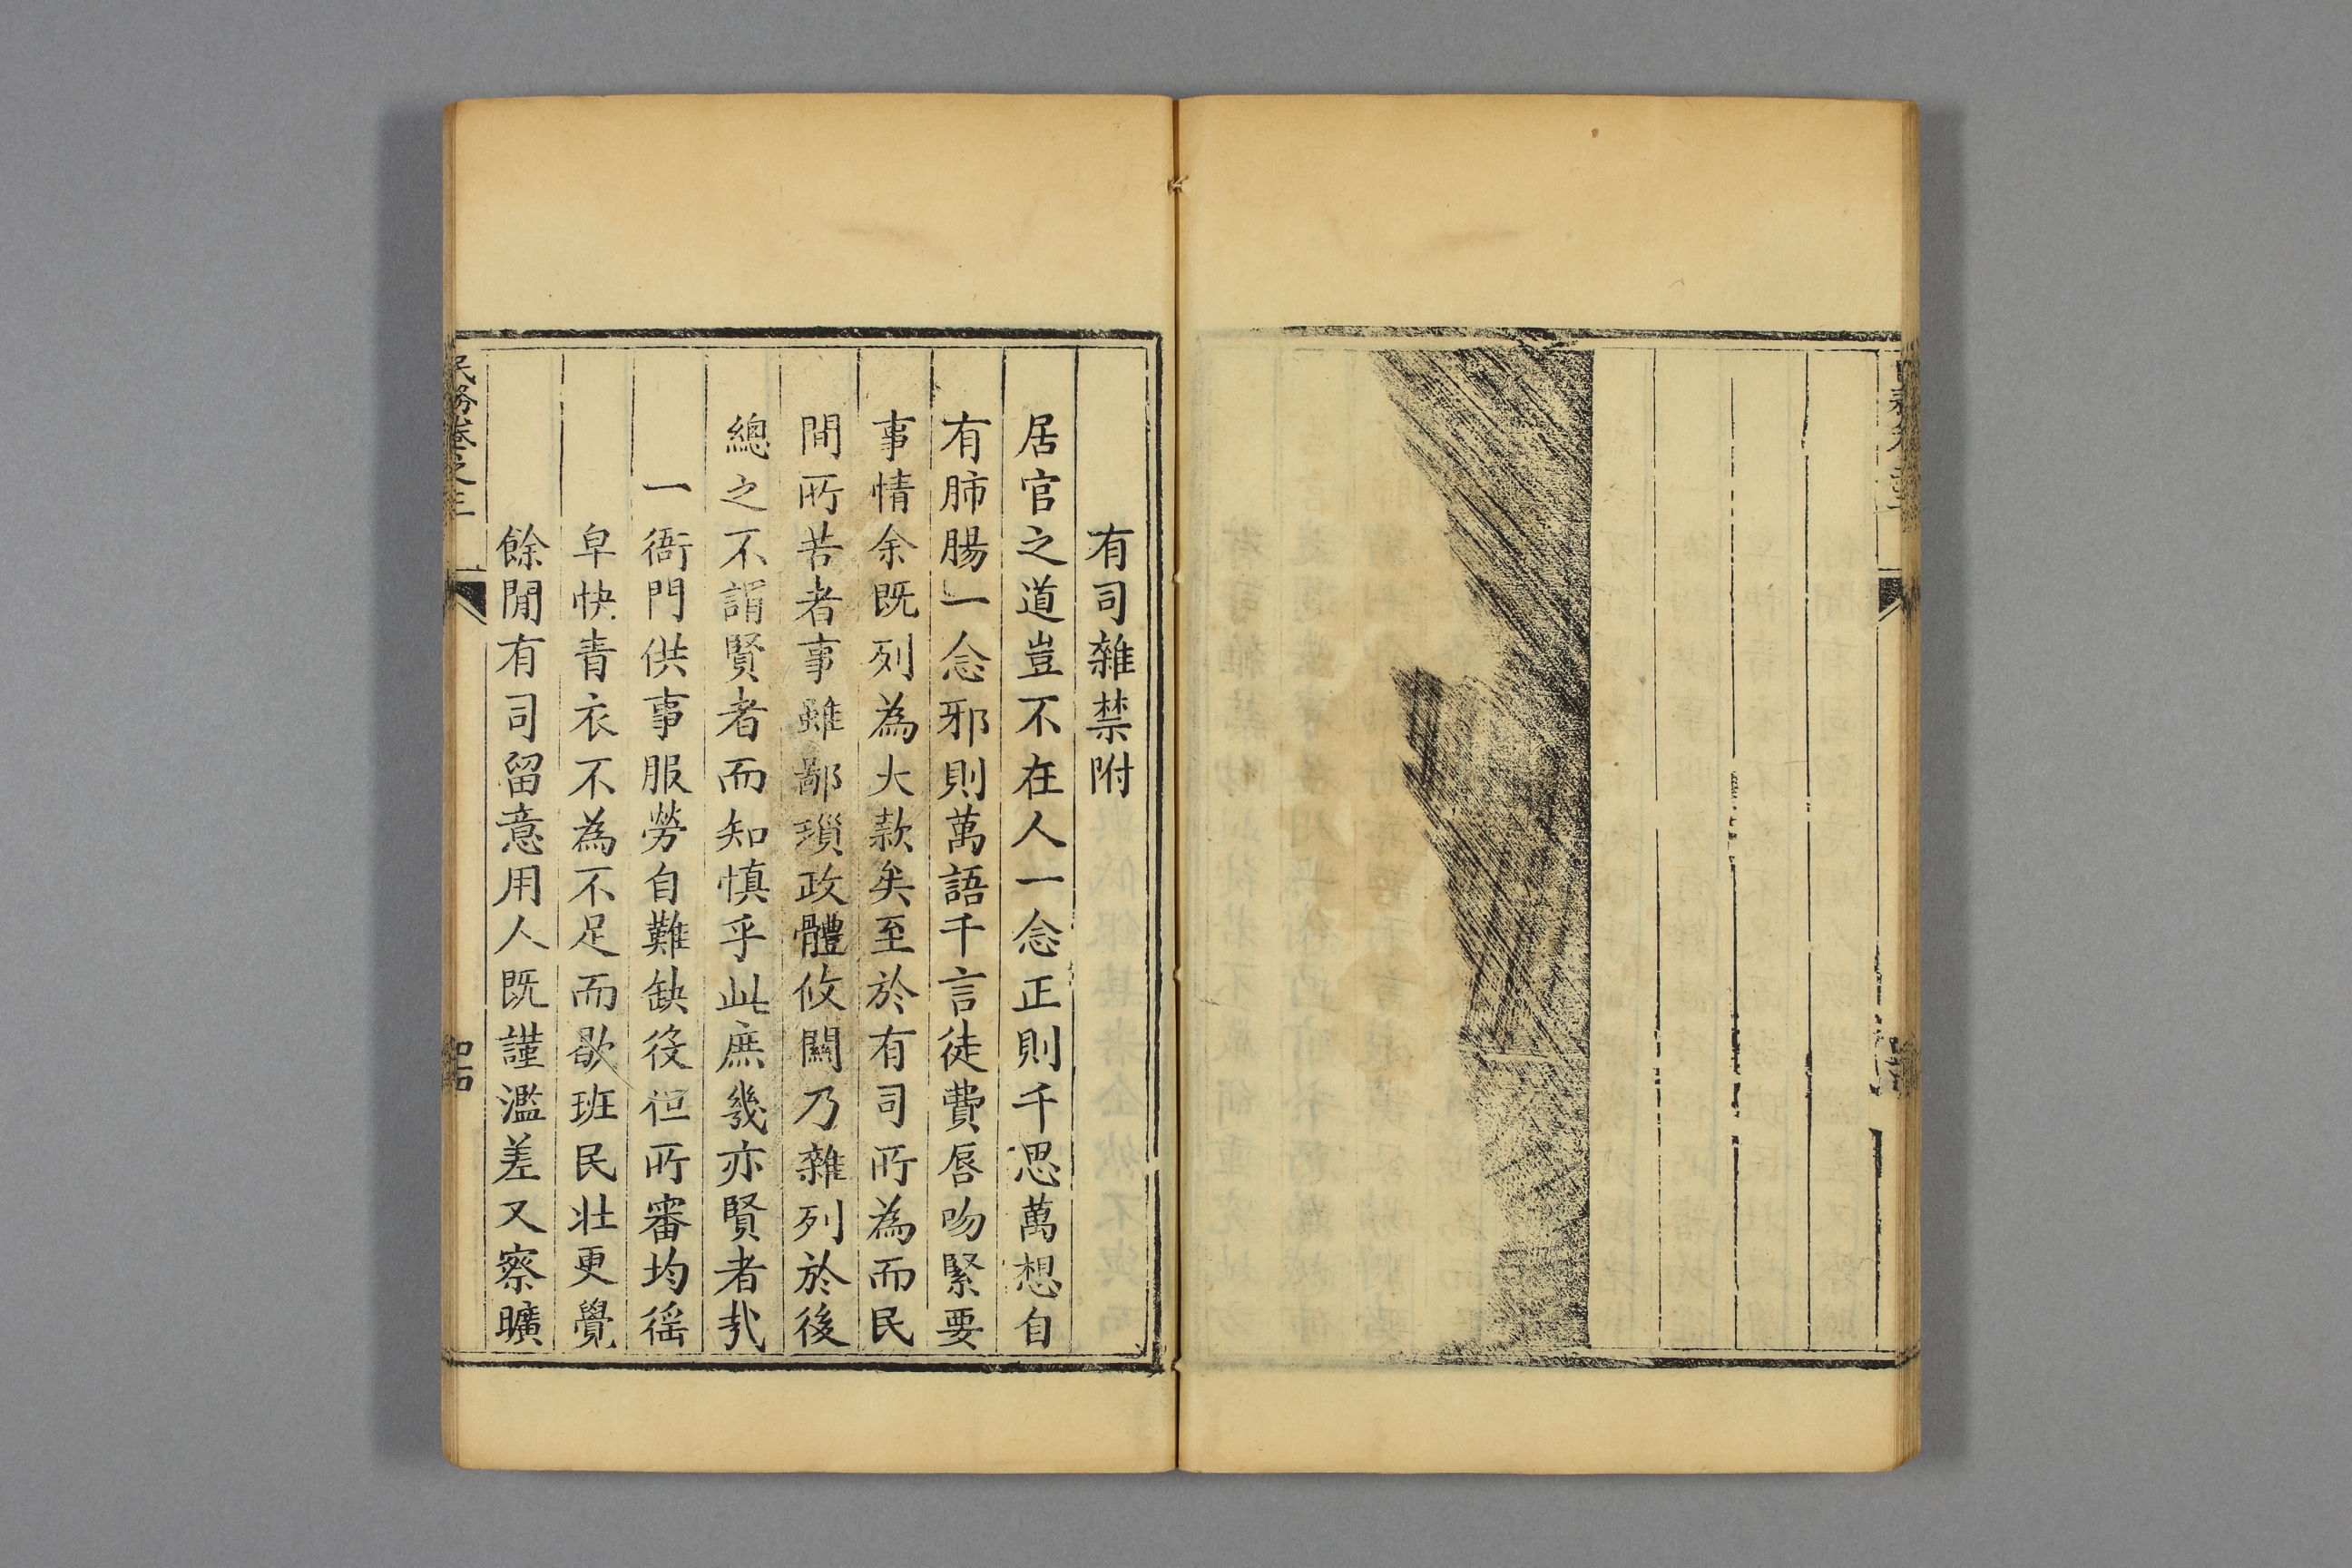 有司雜禁附
居官之道豈不在人一念正則千思萬想自
有肺腸一念邪則萬語千言徒費唇吻緊要
事情余既列為大款矣至於有司所為而民
間所苦者事雖鄙瑣政體攸關乃雜列於後
總之不謂賢者而知慎乎此庶幾亦賢者哉
一衙門供事服勞自難缺役但所審均徭
皁快青衣不為不足而欲班民壯更覺
餘閒有司留意用人既謹濫差又察曠
民務卷之三